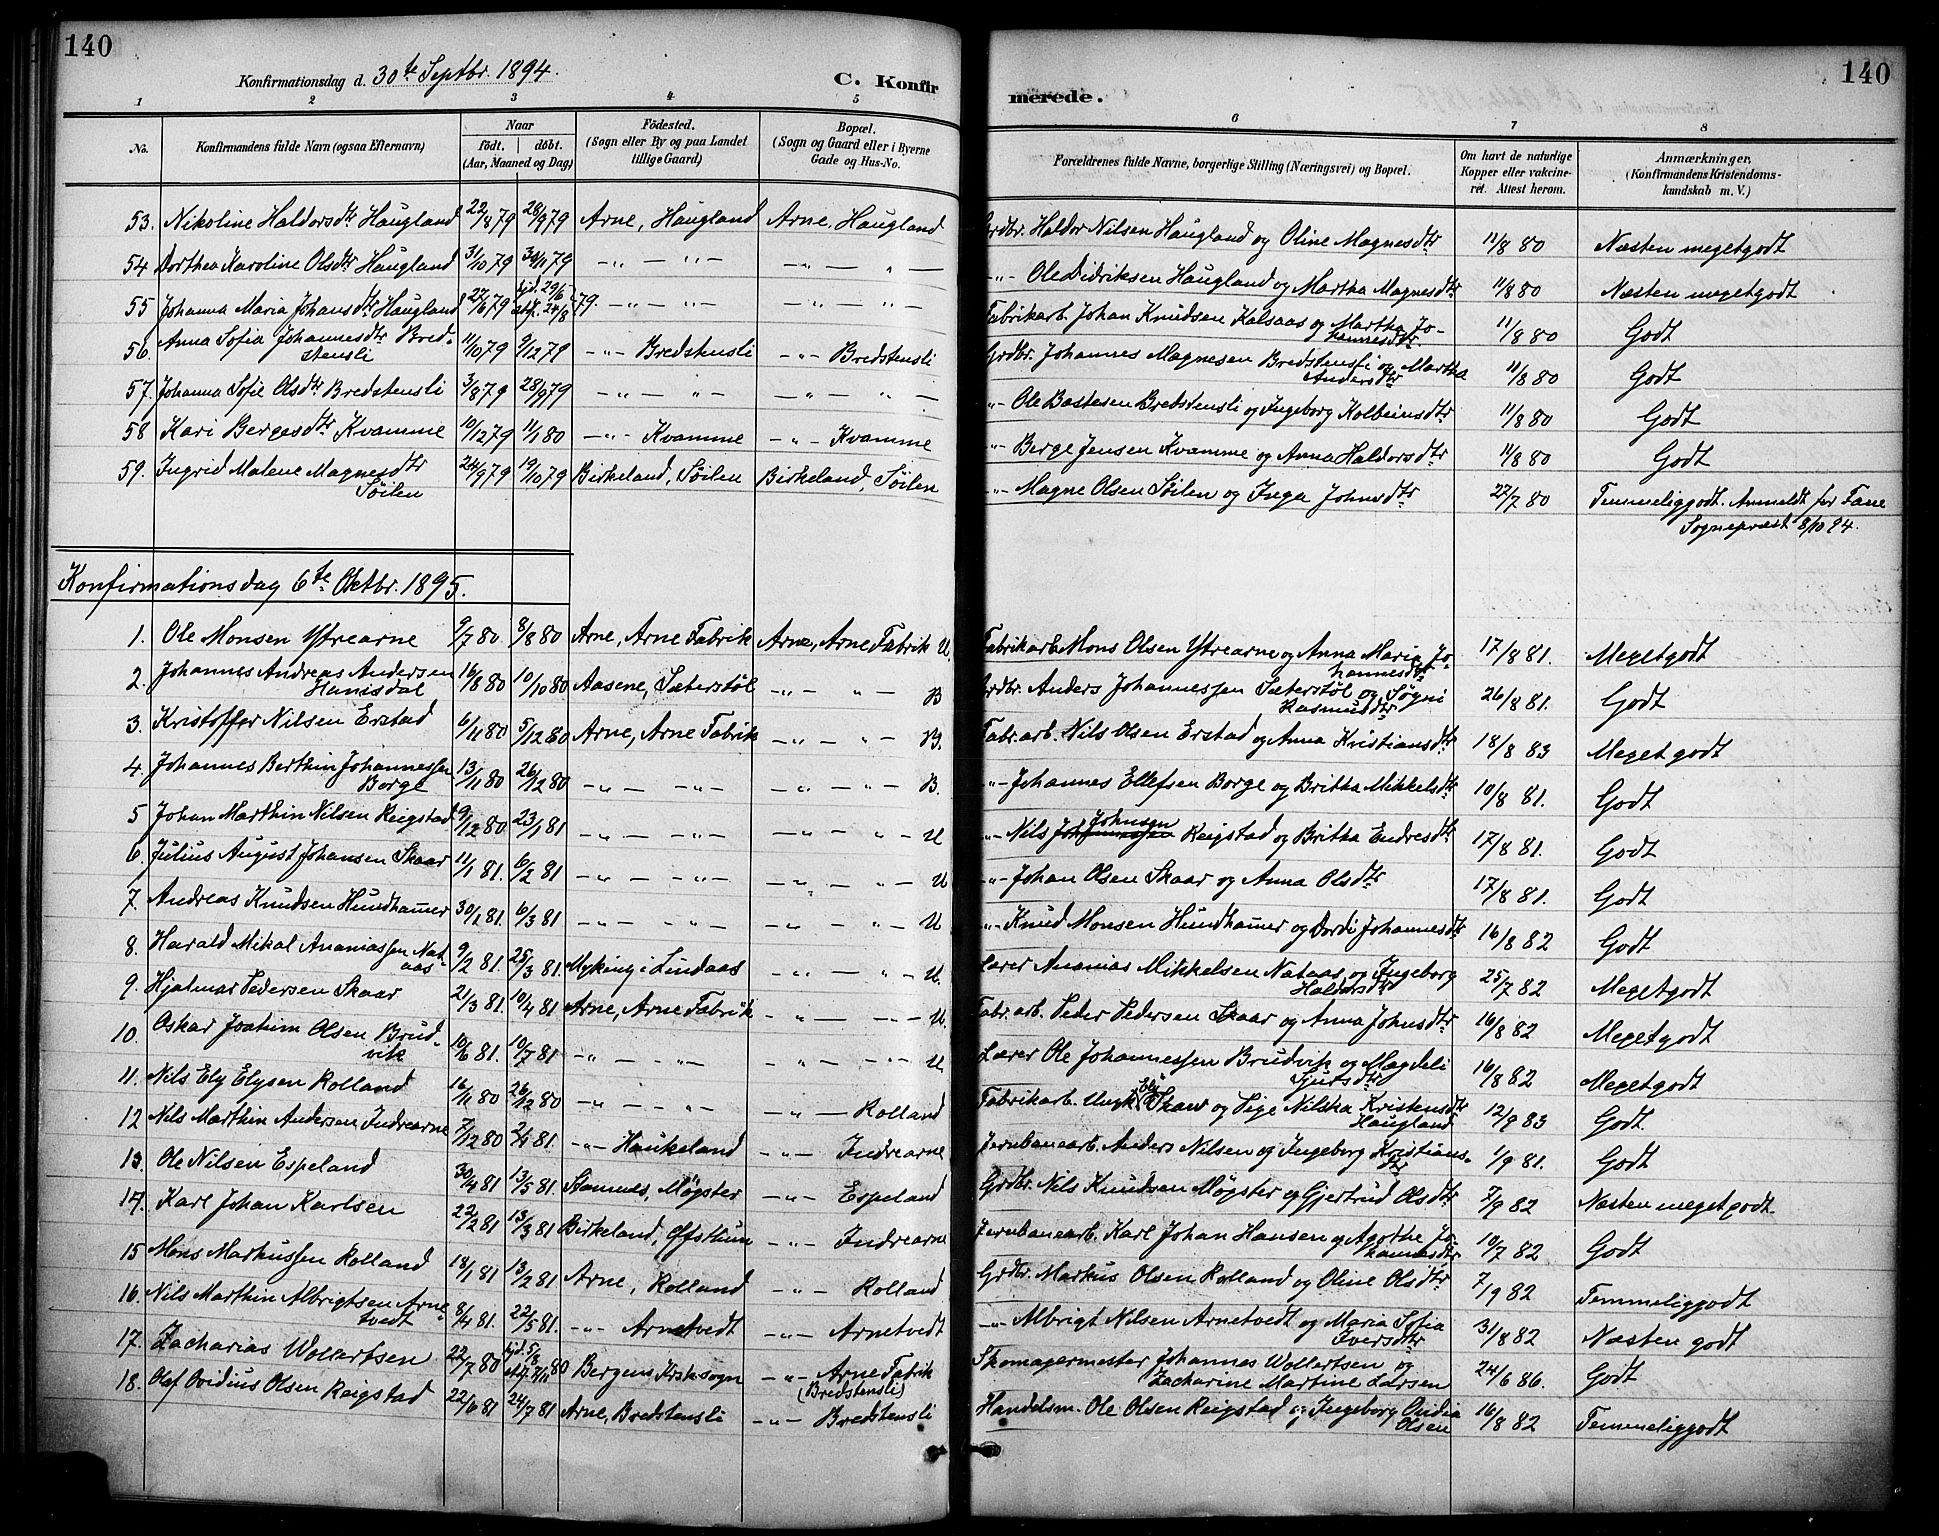 140
140
Konfirmationsdag d. 30te Septbr. 1894.
C. Konfirmerede.
1 2 3 4 5 6 7 8
No.
Konfirmandens fulde Navn (ogsaa Efternavn)
Naar
födt. döbt.
(Aar, Maaned og Dag)
Födested.
(Sogn eller By og paa Landet
tillige Gaard)
Bopæl.
(Sogn og Gaard eller i Byerne
Gade og Hus-No.
Forældrenes fulde Navne, borgerlige Stilling (Næringsvei) og Bopæl.
Om havt de naturlige
Kopper eller vakcine-
ret. Attest herom.
Anmærkninger,
(Konfirmandens Kristendoms-
kundskab m. V.)
53. Nikoline Haldorsdtr Haugland 22/8 79 28/9 79 Arne, Haugland Arne, Haugland Grdbr. Haldor Nilsen Haugland og Oline Magnesdtr 11/8 80 Næsten megetgodt
54 Dorthea Karoline Olsdtr Haugland 31/10 79 30/11 79 -„- -„- -„- „ - -„- Ole Didriksen Haugland og Martha Magnesdtr 11/8 80 Næsten megetgodt
55 Johanna Maria Johansdtr Haugland 27/6 79 hjd. 29/6 stbf. 24/8 79. -„- -„- -„- „ - Fabrikarb. Johan Knudsen Kalsaas og Martha Jo-
hannesdtr. 11/8 80 Godt
56. Anna Sofia Johannesdtr Bred-
stensli 11/10 79 9/12 79 -„- Bredstensli -„- Bredstensli Grdbr. Johannes Magnesen Bredstensli og Martha
Andersdtr 11/8 80 Godt
57. Johanna Sofie Olsdtr Bredstensli 3/8 79 28/9 79 -„- „ - -„- „ - -„- Ole Bastesen Bredstensli og Ingeborg Kolbeinsdtr 11/8 80 Godt
58 Kari Bergesdtr Kvamme 10/12 79 11/1 80 -„- Kvamme -„- Kvamme -„- Berge Jensen Kvamme og Anna Haldorsdtr 11/8 80 Godt
59. Ingrid Malene Magnesdtr
Söilen 24/9 79 19/10 79 Birkeland, Söilen Birkeland, Söilen -„- Magne Olsen Söilen og Inga Johnsdtr 27/7 80 Temmeliggodt. Anmeldt for Fane
Sognepræst 8/10 94.
Konfirmationsdag 6te Oktbr. 1895.
1. Ole Monsen Ytrearne 9/7 80 8/8 80 Arne, Arne Fabrik Arne, Arne Fabrik U. Fabrikarb. Mons Olsen Ytrearne og Anna Maria Jo-
hannesdtr 17/8 81. Megetgodt
2. Johannes Andreas Andersen
Hanisdal 16/8 80 10/10 80 Aasene, Sæterstøl -„- „ - B Grdbr. Anders Johannessen Sæterstøl og Søgni
Rasmusdtr 26/8 81. Godt
3. Kristoffer Nilsen Erstad 6/11 80 5/12 80 Arne, Arne Fabrik -„- „ - B. Fabr. arb. Nils Olsen Erstad og Anna Kristiansdtr 18/8 83 Megetgodt
4. Johannes Berthin Johannessen
Borge 13/11 80 26/12 80 -„- -„- -„- „ - B. -„- Johannes Ellefsen Borge og Britha Mikkelsdtr 10/8 81. Godt
5 Johan Marthin Nilsen Reigstad 9/12 80 23/1 81 -„- -„- -„- „ - U -„- Nils Johnsen Reigstad og Britha Endresdtr 17/8 81. Godt
6. Julius August Johansen Skaar 11/1 81. 6/2 81 -„- -„- -„- „ - U -„- Johan Olsen Skaar og Anna Olsdtr 17/8 81. Godt
7. Andreas Knudsen Hundhamer 30/1 81. 6/3 81 -„- -„- -„- „ - U -„- Knud Monsen Hundhamer og Dordi Johannesdtr 16/8 82 Godt
8. Harald Mikal Ananiassen Nat-
aas 9/2 81. 25/3 81. Myking i Lindaas -„- „ - U. Lærer Ananias Mikkelsen Nataas og Ingeborg
Haldorsdtr 25/7 82 Megetgodt
9. Hjalmar Pedersen Skaar 21/3 81. 10/4 81 Arne, Arne Fabrik -„- -„- U. Fabr. arb. Peder Pedersen Skaar og Anna Johnsdtr 16/8 82 Megetgodt
10. Oskar Joakim Olsen Brud-
vik 10/6 81. 10/7 81 -„- -„- -„- „ - U Lærer Ole Johannessen Brudvik og Magdeli
Sjursdtr 16/8 82 Megetgodt
11. Nils Ely Elysen Rolland 16/11 80 26/12 80 -„- -„- -„- Rolland Fabrikarb. Ungk. Ely Skaar og Pige Nilska Kristensdtr
Haugland 12/9 83 Godt
12 Nils Marthin Andersen Indrearne 7/12 80 2/1 81. -„- Haukeland -„- Indrearne Jernbanearb. Anders Nilsen og Ingeborg Kristians-
dtr 1/9 81. Godt
13. Ole Nilsen Espeland 30/4 81 13/5 81. Stamnes, Møgster -„- Espeland Grdbr. Nils Knudsen Møgster og Gjertrud Olsdtr 7/9 82 Næsten megetgodt
14. Karl Johan Karlsen 22/2 81 13/3 81 Birkeland, Øfsthun -„- Indrearne Jernbanearb. Karl Johan Hansen og Agothe Jo-
hannesdtr 10/7 82 Godt
15 Mons Markussen Rolland 18/1 81 13/2 81 Arne, Rolland -„- Rolland Grdbr. Markus Olsen Rolland og Oline Olsdtr 7/9 82 Temmeliggodt
16. Nils Marthin Albrigtsen Arne-
tvedt 8/4 81. 22/5 81. -„- Arnetvedt -„- Arnetvedt -„- Albrigt Nilsen Arnetvedt og Maria Sofia
Iversdtr 31/8 82 Næsten godt
17. Zacharias Wollertsen 22/7 80 hjd. 5/8 stbf. 7/11 80 Bergens Korsksogn -„- Arne Fabrik
(Bredstensli) Skomagermester Johannes Wollertsen og
Zacharine Martine Larsen 24/6 86. Godt
18. Olaf Ovidius Olsen Reigstad 22/6 81 24/7 81 Arne, Bredstensli -„- Bredstensli Handelsm. Ole Olsen Reigstad og Ingeborg Ovidia
Olsen 16/8 82 Temmeliggodt